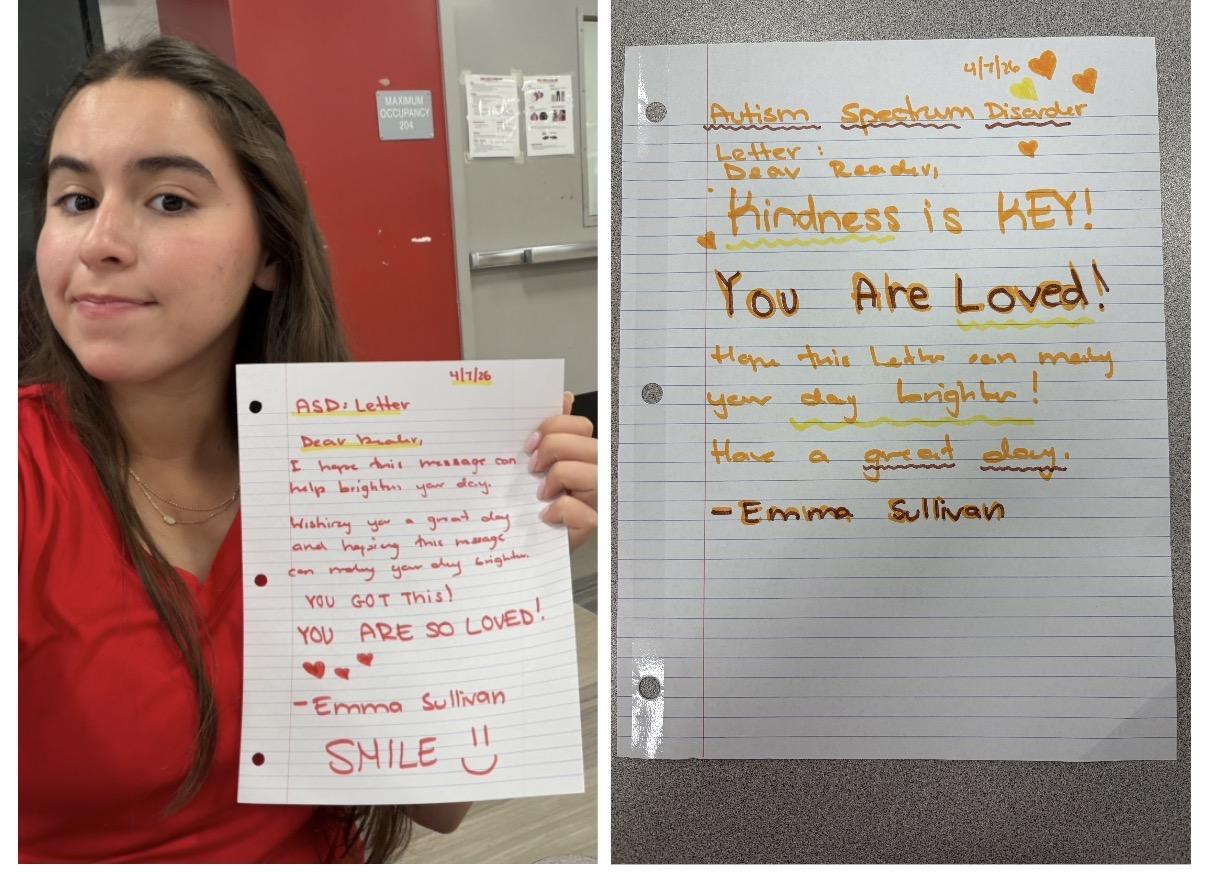 MAXIMUM
OCCUPANCY
204
4/7/26
ASD: Letter
Dear Reader,
I hope this message can
help brighten your day.
Wishing you a great day
and hoping this message
can make your day brighter.
YOU GOT This!
YOU ARE SO LOVED!
-Emma Sullivan
SMILE
4/7/26
Autism Spectrum Disorder
Letter:
Dear Reader,
Kindness is KEY!
You Are Loved!
Hope this Letter can make
your day brighter!
Have a great day.
-Emma Sullivan